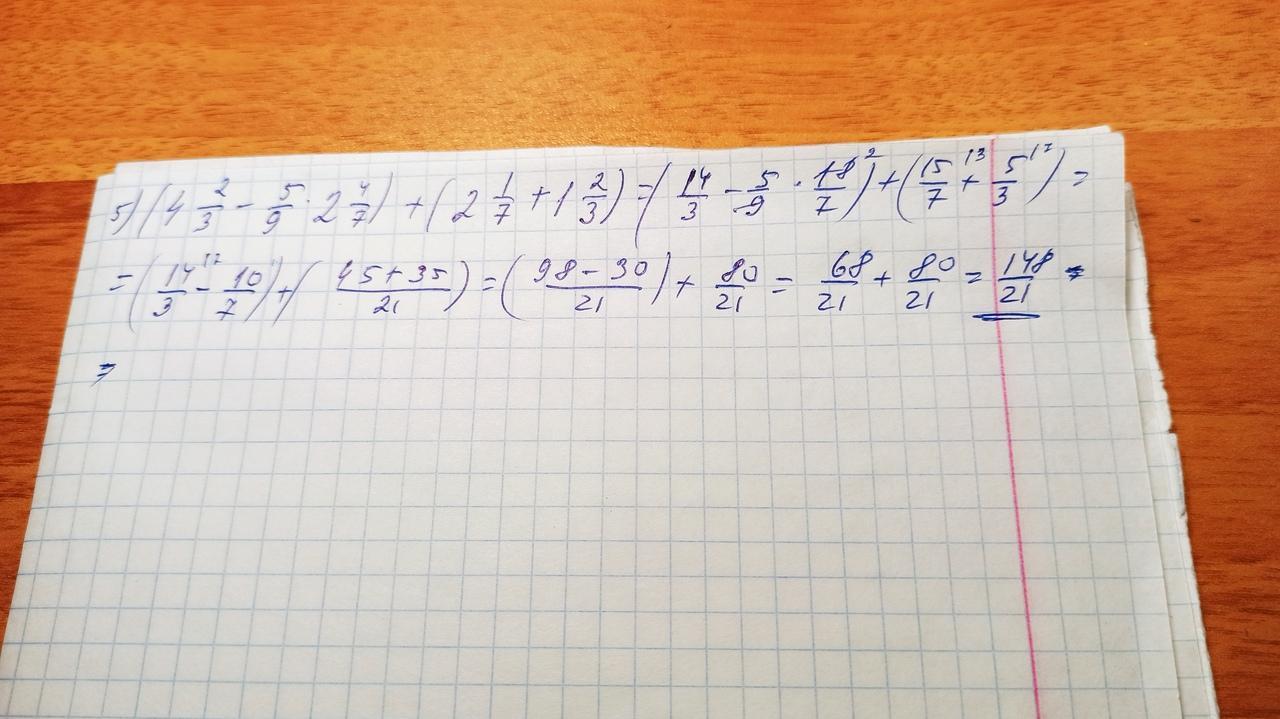 5) (4 2/3 - 5/9 · 2 4/7) + (2 1/7 + 1 2/3) = (14/3 - 5/9 · 18/7 ²) + (15/7 ¹³ + 5/3 ¹⁷) =
= (14/3 ¹⁷ - 10/7) + (45+35/21) = (98-30/21) + 80/21 = 68/21 + 80/21 = 148/21 =
=